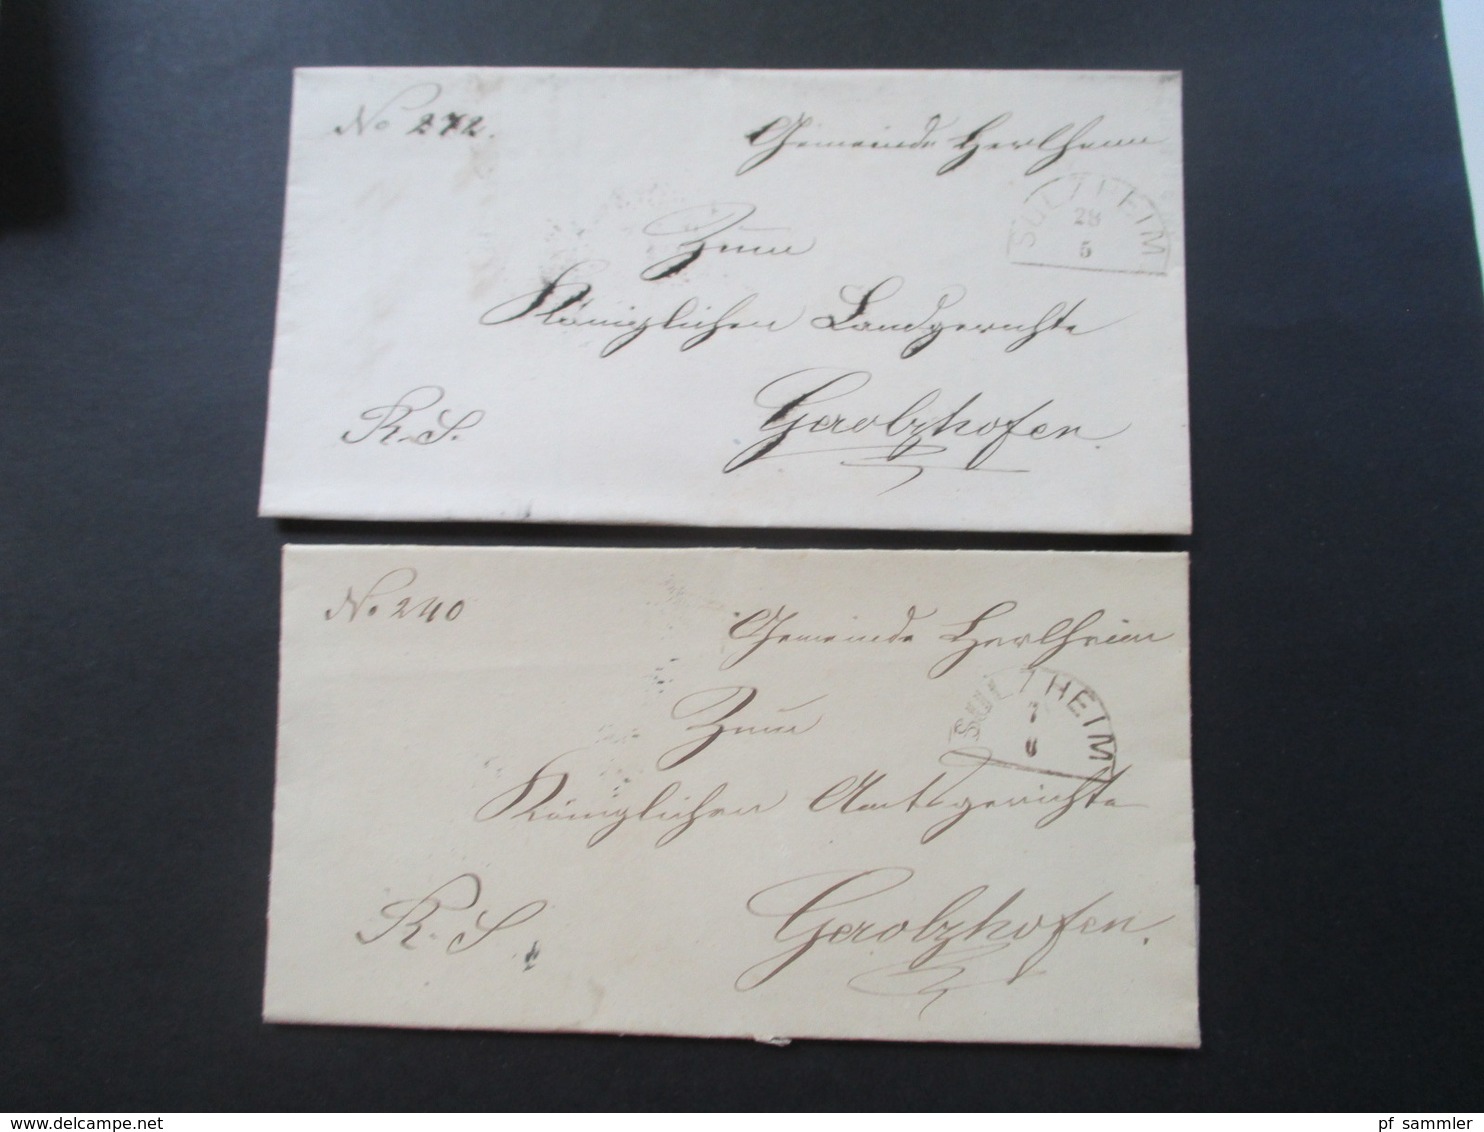 No 272.
Gemeinde Herlheim
SULZHEIM
28
5
Zum
Königlichen Landgerichte
R. S.
Gerolzhofen.
No. 240
Gemeinde Herlheim
SULZHEIM
7
6
Zum
Königlichen Amtsgerichte
R. S.
Gerolzhofen.
www.delcampe.net
pf_sammler